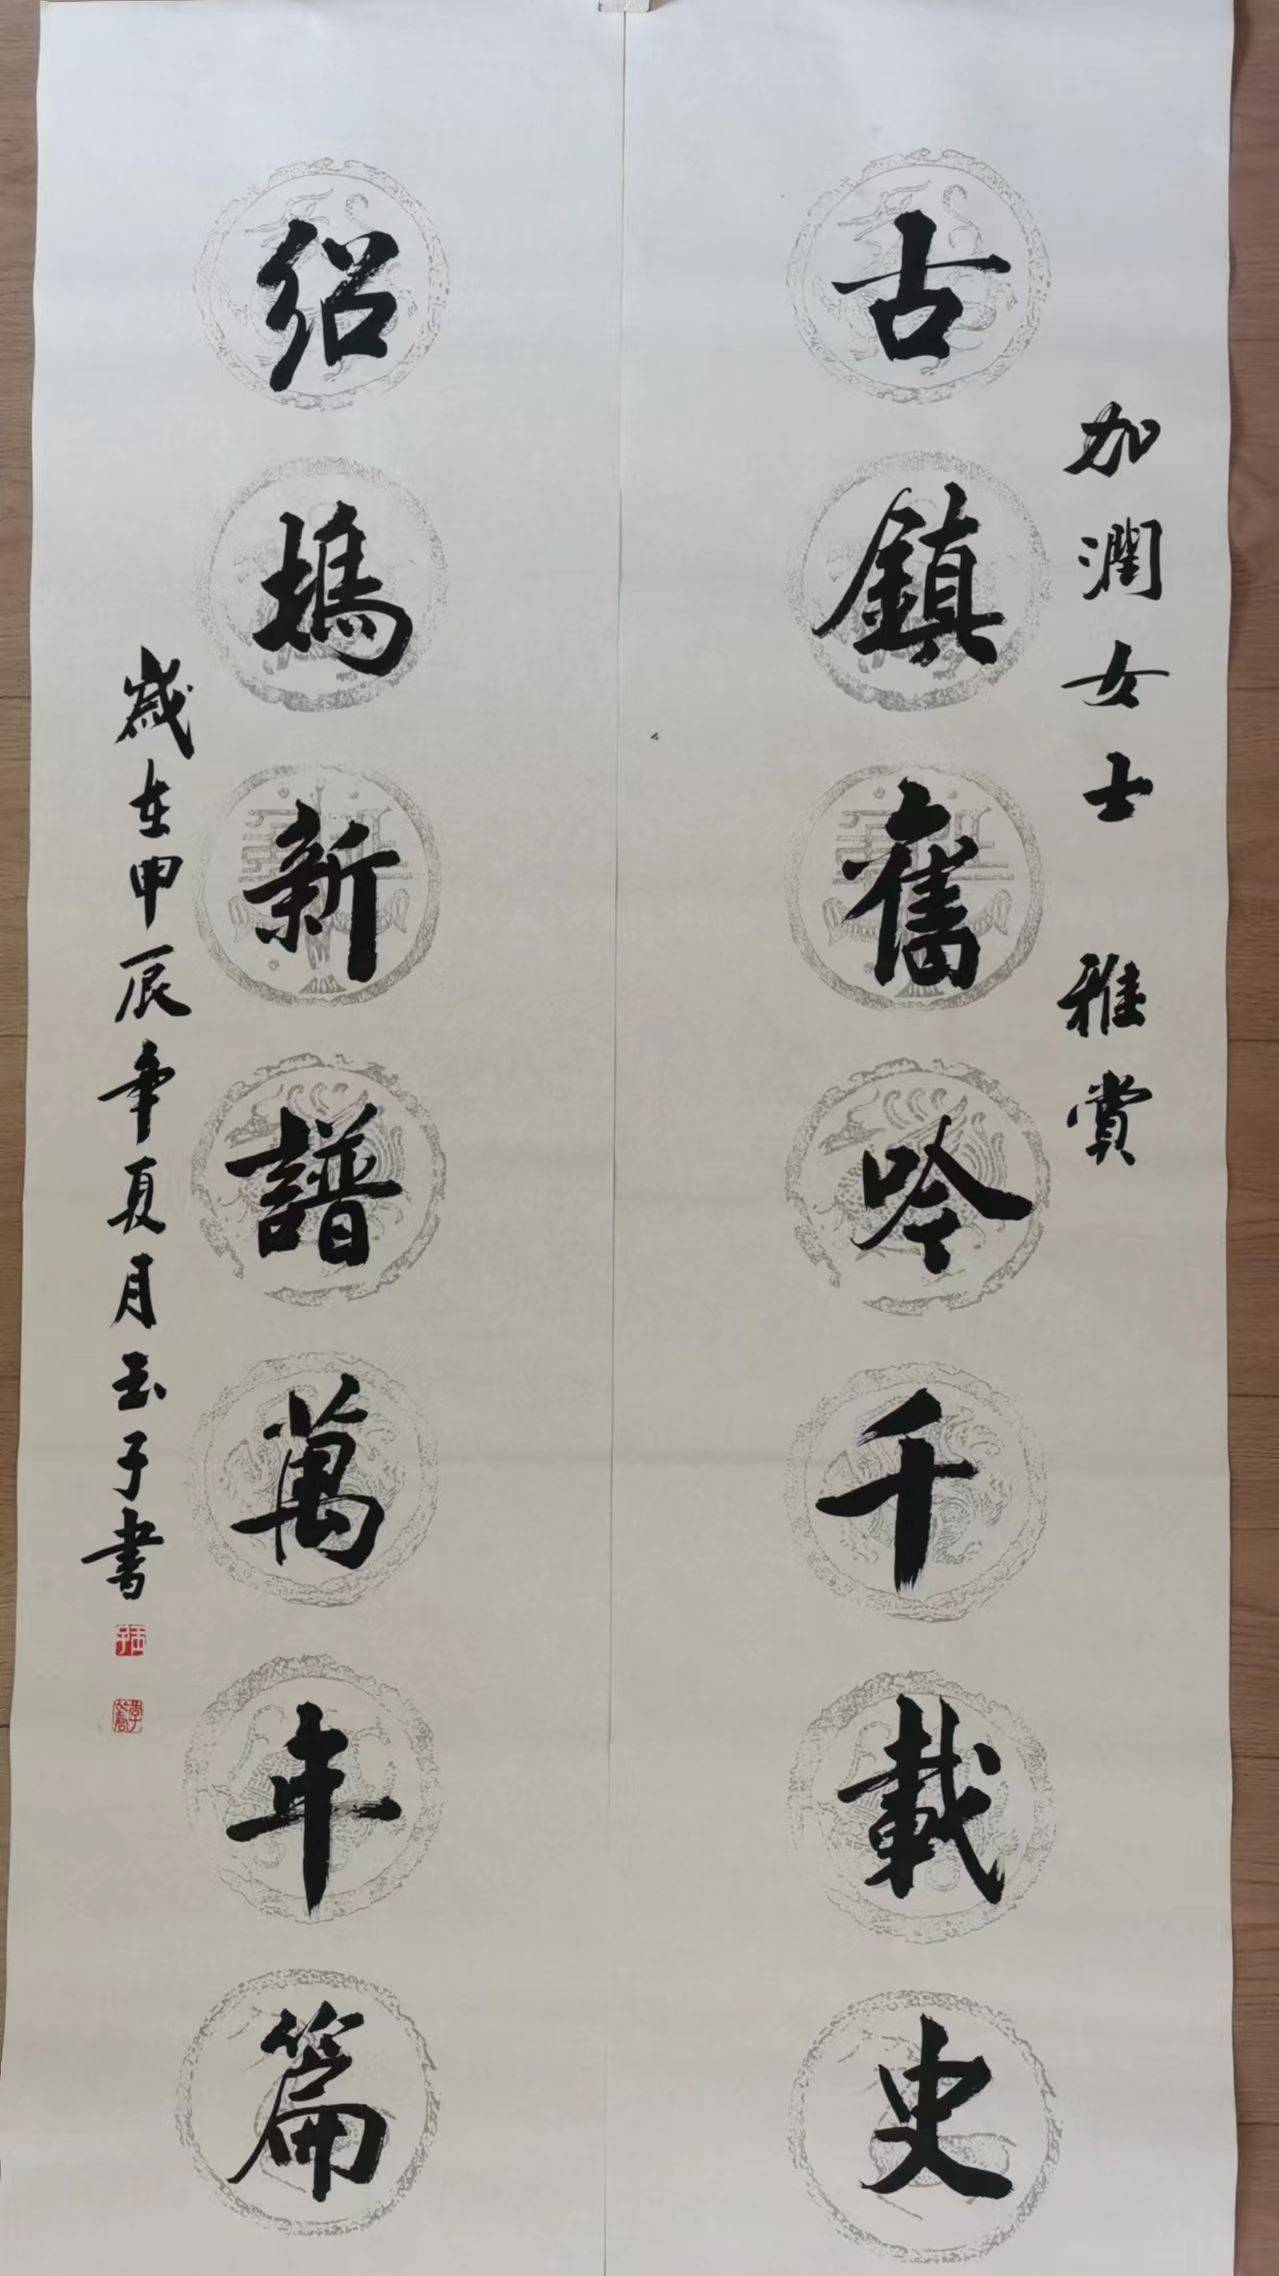 加潤女士 雅賞
古鎮舊吟千載史
紹塢新譜萬年篇
歲在甲辰年夏月玉子書